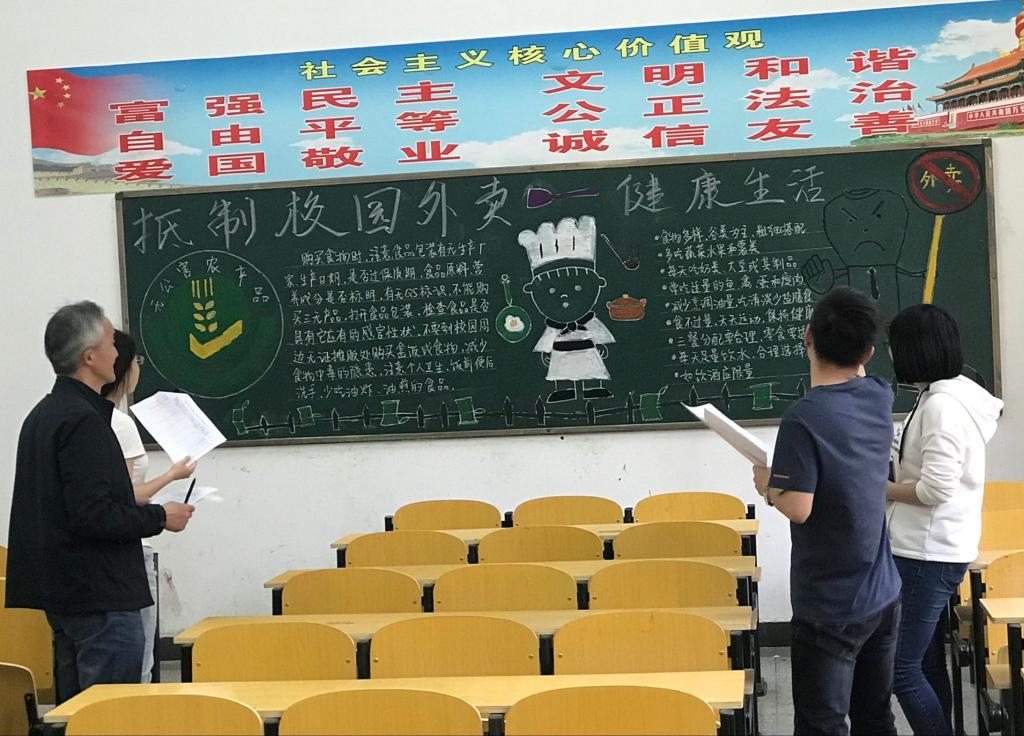 社会主义核心价值观
富强 民主 文明 和谐
自由 平等 公正 法治
爱国 敬业 诚信 友善
中华人民共和国万岁
抵制校园外卖 健康生活
外卖
无公害农产品
购买食物时,注意食品包装有无生产厂
家,生产日期,是否过保质期,食品原料,营
养成分是否标明,有无QS标识,不能购
买三无食品,打开食品包装,检查食品是否
具有它应有的感官性状,不要到校园周
边无证摊贩处购买盒饭或食物,减少
食物中毒的隐患,注意个人卫生,饭前便后
洗手,少吃油炸、油煎的食品。
•食物多样,谷类为主,粗细搭配
•多吃蔬菜水果和薯类
•每天吃奶类、大豆或其制品
•常吃适量的鱼、禽、蛋和瘦肉
•减少烹调油量,吃清淡少盐膳食
•食不过量,天天运动,保持健康
•三餐分配要合理,零食要适
•每天足量饮水,合理选择
•如饮酒应限量